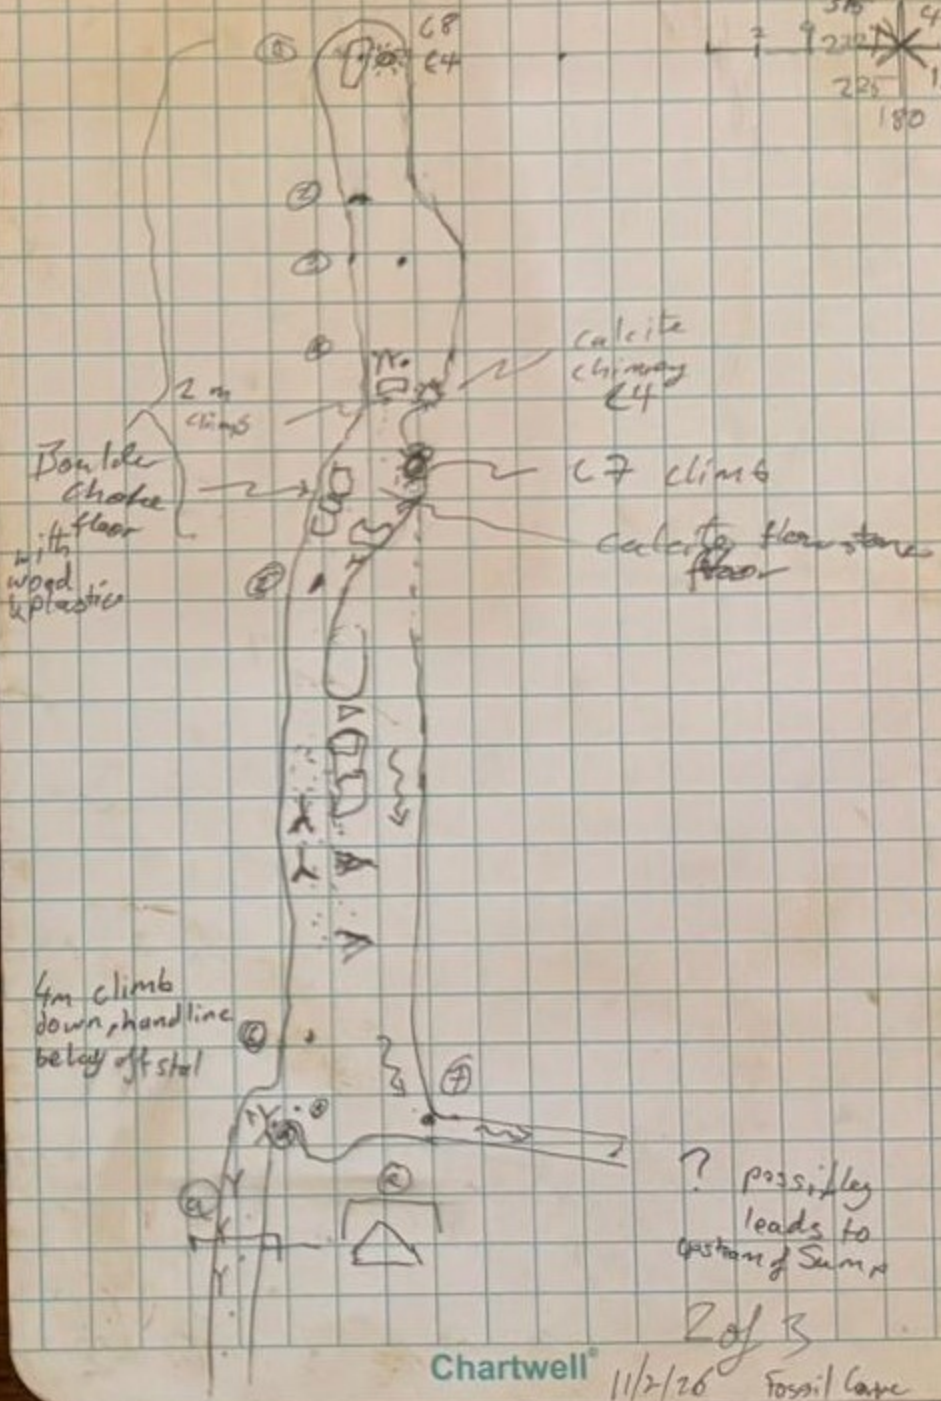 C8
C4
315
222
225
180
2 m
climb
calcite
chimney
C4
Boulder
choke
floor
with
wood
& plastic
C7 climb
calcite flowstone
floor
4m climb
down, handline
belay off stal
6
7
a
a
? possibley
leads to
upstream of Sump
2 of 3
Chartwell®
11/2/26 Fossil Cave